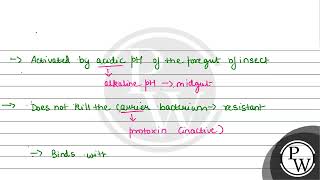 -> Activated by acidic pH of the foregut of insect
alkaline pH -> midgut
-> Does not kill the carrier bacterium -> resistant
protoxin (inactive)
-> Binds with
P
W
P
W